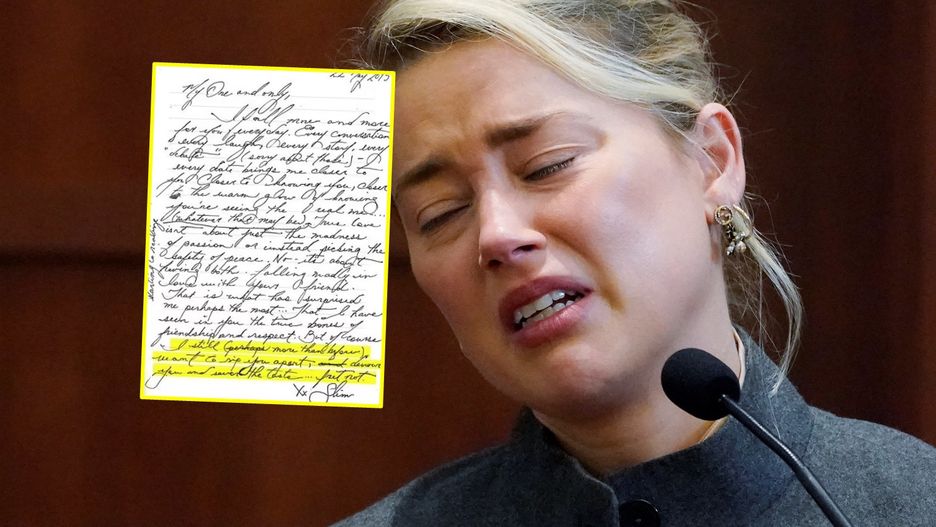 22 2013
My One and only,
I fall more and more
for you everyday. Every conversation
every laugh, every story, every
"debate" (sorry about those!) - I
every date brings me closer to
you. Closer to knowing you, closer
to the warm glow of knowing
you're seeing the real me...
(whatever that may be). True love
isnt about just the madness
of passion or instead picking the
safety of peace. No - its about
having both. falling madly in
love with your friend.
That is what has surprised
me perhaps the most... That I have
seen in you the true bones of
friendship and respect. But of course
I still (perhaps more than before)
want to rip you apart, and devour
you and savor the taste ... fret not.
Xx Slim